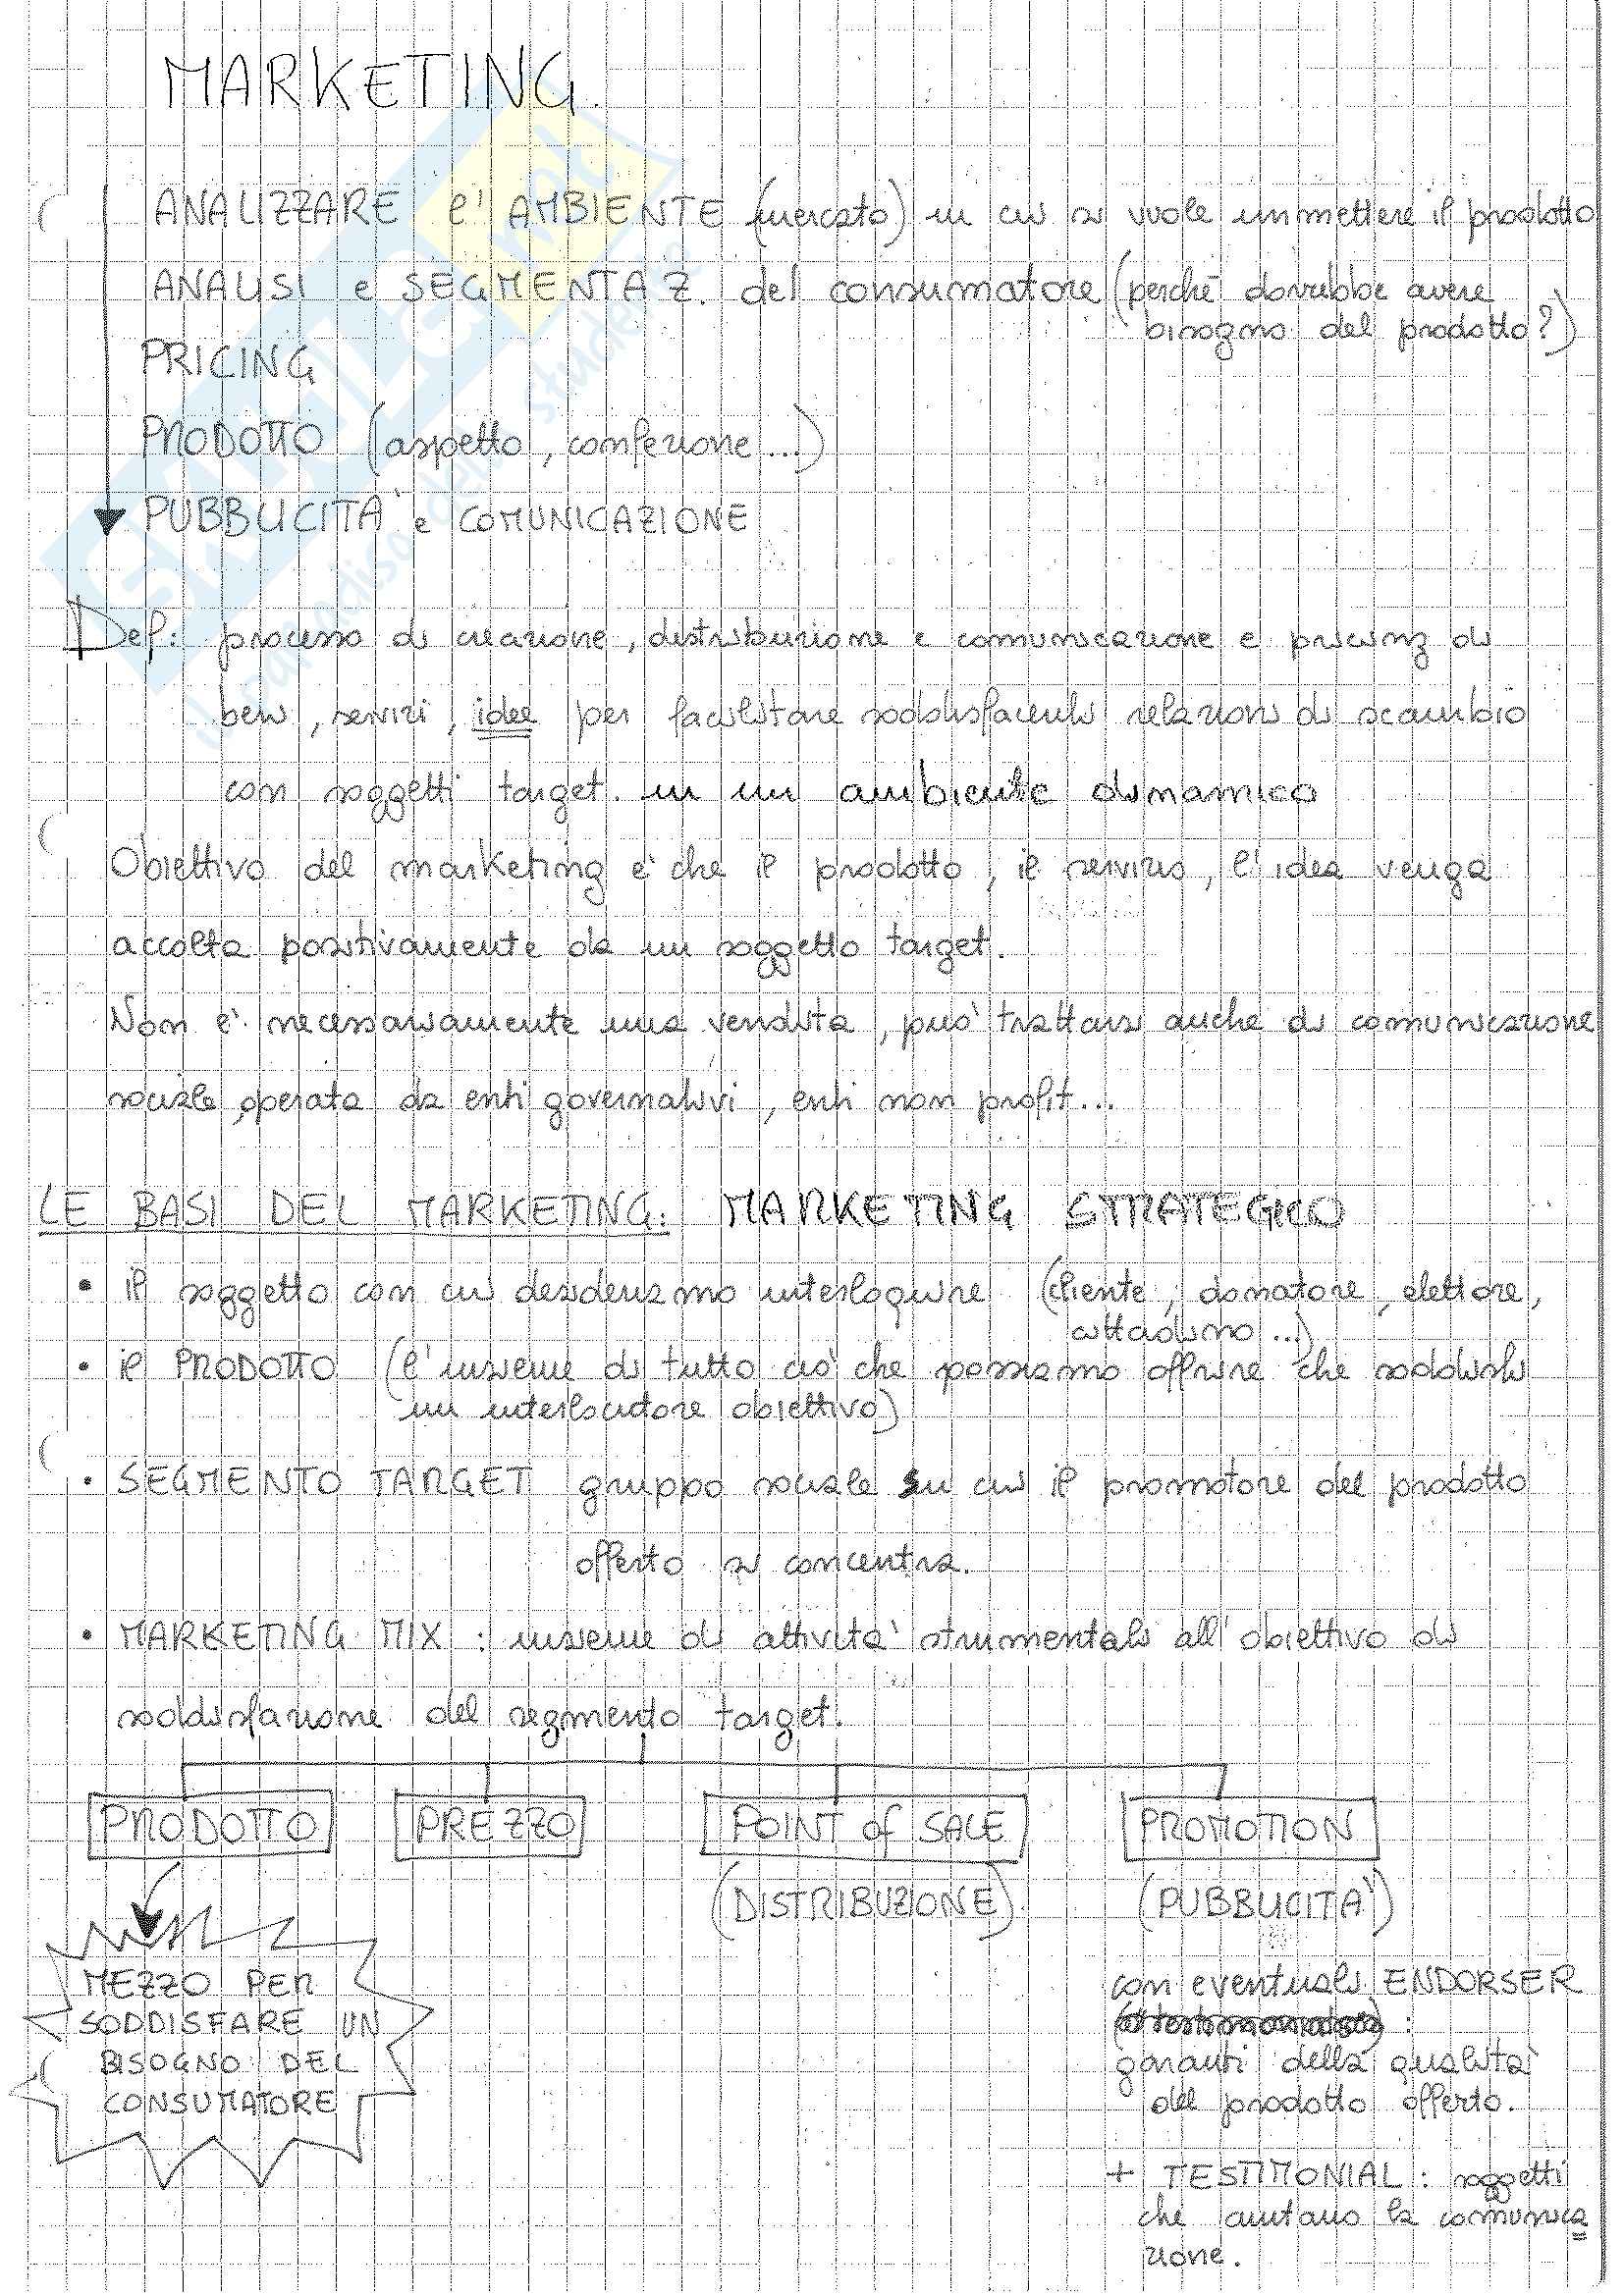 MARKETING.
ANALIZZARE l'AMBIENTE (mercato) in cui si vuole immettere il prodotto
ANALISI e SEGMENTAZ. del consumatore (perché dovrebbe avere
bisogno del prodotto?)
PRICING
PRODOTTO (aspetto, confezione...)
PUBBLICITA' e COMUNICAZIONE
Def: processo di creazione, distribuzione e comunicazione e pricing di
beni, servizi, idee per facilitare soddisfacenti relazioni di scambio
con soggetti target. in un ambiente dinamico
Obiettivo del marketing e' che il prodotto, il servizio, l'idea venga
accolta positivamente da un soggetto target.
Non e' necessariamente una vendita, puo' trattarsi anche di comunicazione
sociale, operata da enti governativi, enti non profit...
LE BASI DEL MARKETING: MARKETING STRATEGICO
• il soggetto con cui desideriamo interloquire (cliente, donatore, elettore,
cittadino...)
• il PRODOTTO (l'insieme di tutto cio' che possiamo offrire che soddisfi
un interlocutore obiettivo)
• SEGMENTO TARGET gruppo sociale su cui il promotore del prodotto
offerto si concentra.
• MARKETING MIX : insieme di attivita' strumentali all'obiettivo di
soddisfazione del segmento target.
PRODOTTO PREZZO POINT of SALE PROMOTION
(DISTRIBUZIONE) (PUBBLICITA')
MEZZO PER
SODDISFARE UN
BISOGNO DEL
CONSUMATORE
con eventuali ENDORSER
:
garanti della qualita'
del prodotto offerto.
+ TESTIMONIAL : soggetti
che aiutano la comunica
zione.